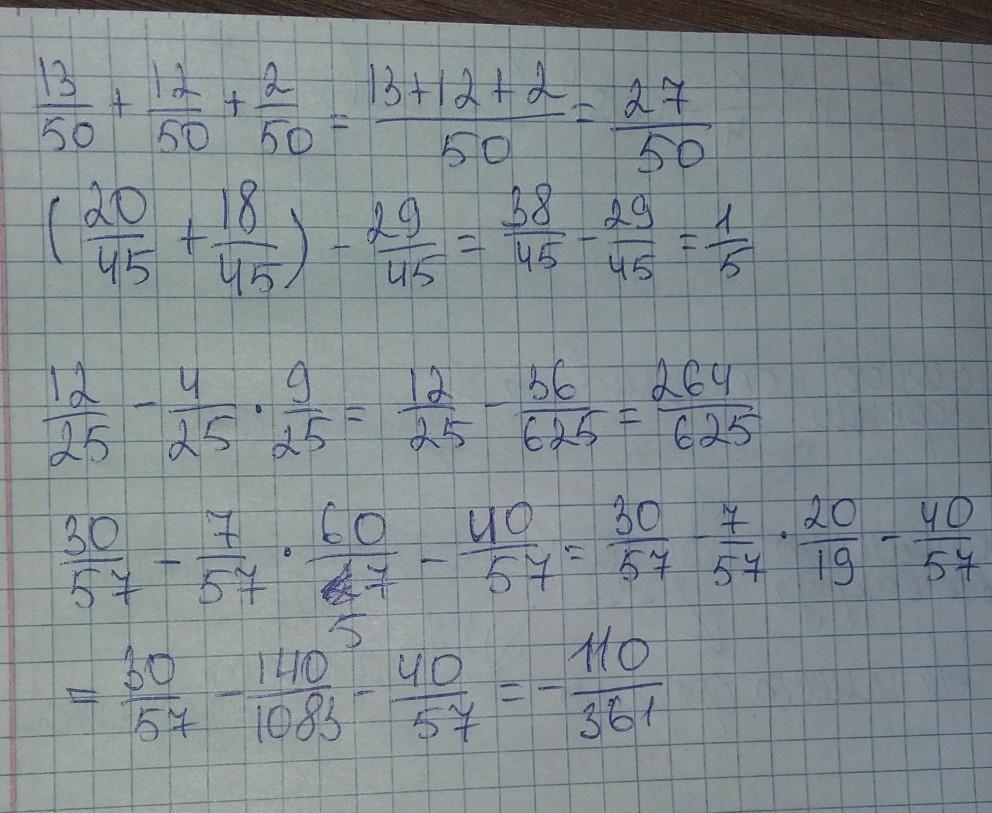 13/50 + 12/50 + 2/50 = (13+12+2)/50 = 27/50
(20/45 + 18/45) - 29/45 = 38/45 - 29/45 = 1/5
12/25 - 4/25 · 9/25 = 12/25 - 36/625 = 264/625
30/57 - 7/57 · 60/57 - 40/57 = 30/57 - 7/57 · 20/19 - 40/57
= 30/57 - 140/1083 - 40/57 = - 110/361